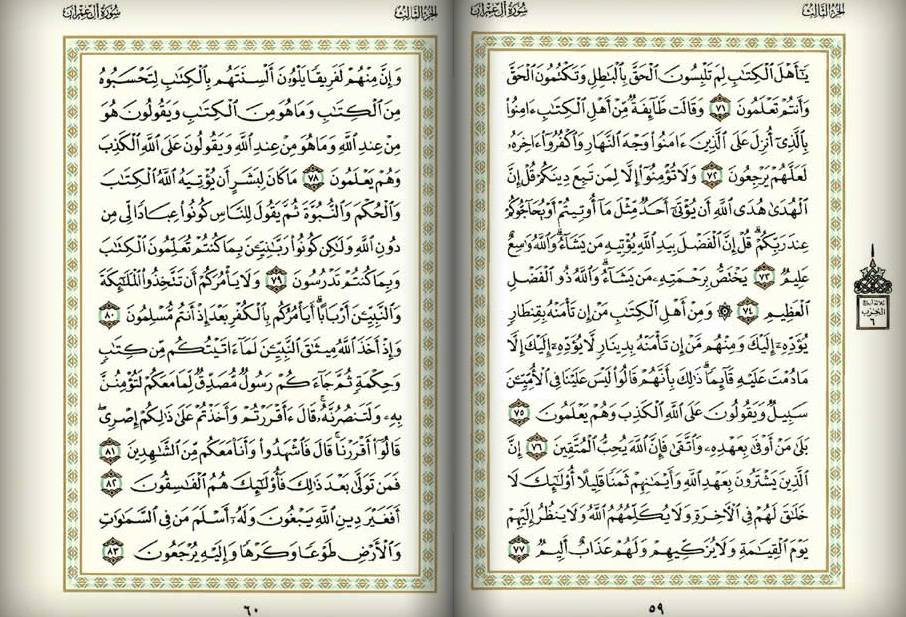 الجزء الثالث
سورة آل عمران
يَٰٓأَهْلَ ٱلْكِتَٰبِ لِمَ تَلْبِسُونَ ٱلْحَقَّ بِٱلْبَٰطِلِ وَتَكْتُمُونَ ٱلْحَقَّ
وَأَنتُمْ تَعْلَمُونَ ٧١ وَقَالَت طَّآئِفَةٌ مِّنْ أَهْلِ ٱلْكِتَٰبِ ءَامِنُوا۟
بِٱلَّذِىٓ أُنزِلَ عَلَى ٱلَّذِينَ ءَامَنُوا۟ وَجْهَ ٱلنَّهَارِ وَٱكْفُرُوٓا۟ ءَاخِرَهُۥ
لَعَلَّهُمْ يَرْجِعُونَ ٧٢ وَلَا تُؤْمِنُوٓا۟ إِلَّا لِمَن تَبِعَ دِينَكُمْ قُلْ إِنَّ
ٱلْهُدَىٰ هُدَى ٱللَّهِ أَن يُؤْتَىٰٓ أَحَدٌ مِّثْلَ مَآ أُوتِيتُمْ أَوْ يُحَآجُّوكُمْ
عِندَ رَبِّكُمْ ۗ قُلْ إِنَّ ٱلْفَضْلَ بِيَدِ ٱللَّهِ يُؤْتِيهِ مَن يَشَآءُ ۗ وَٱللَّهُ وَٰسِعٌ
عَلِيمٌ ٧٣ يَخْتَصُّ بِرَحْمَتِهِۦ مَن يَشَآءُ ۗ وَٱللَّهُ ذُو ٱلْفَضْلِ
ٱلْعَظِيمِ ٧٤ ۞ وَمِنْ أَهْلِ ٱلْكِتَٰبِ مَنْ إِن تَأْمَنْهُ بِقِنطَارٍ
يُؤَدِّهِۦٓ إِلَيْكَ وَمِنْهُم مَّنْ إِن تَأْمَنْهُ بِدِينَارٍ لَّا يُؤَدِّهِۦٓ إِلَيْكَ إِلَّا
مَا دُمْتَ عَلَيْهِ قَآئِمًا ۗ ذَٰلِكَ بِأَنَّهُمْ قَالُوا۟ لَيْسَ عَلَيْنَا فِى ٱلْأُمِّيِّـۧنَ
سَبِيلٌ وَيَقُولُونَ عَلَى ٱللَّهِ ٱلْكَذِبَ وَهُمْ يَعْلَمُونَ ٧٥
بَلَىٰ مَنْ أَوْفَىٰ بِعَهْدِهِۦ وَٱتَّقَىٰ فَإِنَّ ٱللَّهَ يُحِبُّ ٱلْمُتَّقِينَ ٧٦ إِنَّ
ٱلَّذِينَ يَشْتَرُونَ بِعَهْدِ ٱللَّهِ وَأَيْمَٰنِهِمْ ثَمَنًا قَلِيلًا أُو۟لَٰٓئِكَ لَا
خَلَٰقَ لَهُمْ فِى ٱلْءَاخِرَةِ وَلَا يُكَلِّمُهُمُ ٱللَّهُ وَلَا يَنظُرُ إِلَيْهِمْ
يَوْمَ ٱلْقِيَٰمَةِ وَلَا يُزَكِّيهِمْ وَلَهُمْ عَذَابٌ أَلِيمٌ ٧٧
الحزب
٦
٥٩
الجزء الثالث
سورة آل عمران
وَإِنَّ مِنْهُمْ لَفَرِيقًا يَلْوُۥنَ أَلْسِنَتَهُم بِٱلْكِتَٰبِ لِتَحْسَبُوهُ
مِنَ ٱلْكِتَٰبِ وَمَا هُوَ مِنَ ٱلْكِتَٰبِ وَيَقُولُونَ هُوَ
مِنْ عِندِ ٱللَّهِ وَمَا هُوَ مِنْ عِندِ ٱللَّهِ وَيَقُولُونَ عَلَى ٱللَّهِ ٱلْكَذِبَ
وَهُمْ يَعْلَمُونَ ٧٨ مَا كَانَ لِبَشَرٍ أَن يُؤْتِيَهُ ٱللَّهُ ٱلْكِتَٰبَ
وَٱلْحُكْمَ وَٱلنُّبُوَّةَ ثُمَّ يَقُولَ لِلنَّاسِ كُونُوا۟ عِبَادًا لِّى مِن
دُونِ ٱللَّهِ وَلَٰكِن كُونُوا۟ رَبَّٰنِيِّـۧنَ بِمَا كُنتُمْ تُعَلِّمُونَ ٱلْكِتَٰبَ
وَبِمَا كُنتُمْ تَدْرُسُونَ ٧٩ وَلَا يَأْمُرَكُمْ أَن تَتَّخِذُوا۟ ٱلْمَلَٰٓئِكَةَ
وَٱلنَّبِيِّـۧنَ أَرْبَابًا ۗ أَيَأْمُرُكُم بِٱلْكُفْرِ بَعْدَ إِذْ أَنتُم مُّسْلِمُونَ ٨٠
وَإِذْ أَخَذَ ٱللَّهُ مِيثَٰقَ ٱلنَّبِيِّـۧنَ لَمَآ ءَاتَيْتُكُم مِّن كِتَٰبٍ
وَحِكْمَةٍ ثُمَّ جَآءَكُمْ رَسُولٌ مُّصَدِّقٌ لِّمَا مَعَكُمْ لَتُؤْمِنُنَّ
بِهِۦ وَلَتَنصُرُنَّهُۥ ۚ قَالَ ءَأَقْرَرْتُمْ وَأَخَذْتُمْ عَلَىٰ ذَٰلِكُمْ إِصْرِى ۖ
قَالُوٓا۟ أَقْرَرْنَا ۚ قَالَ فَٱشْهَدُوا۟ وَأَنَا۠ مَعَكُم مِّنَ ٱلشَّٰهِدِينَ ٨١
فَمَن تَوَلَّىٰ بَعْدَ ذَٰلِكَ فَأُو۟لَٰٓئِكَ هُمُ ٱلْفَٰسِقُونَ ٨٢
أَفَغَيْرَ دِينِ ٱللَّهِ يَبْغُونَ وَلَهُۥٓ أَسْلَمَ مَن فِى ٱلسَّمَٰوَٰتِ
وَٱلْأَرْضِ طَوْعًا وَكَرْهًا وَإِلَيْهِ يُرْجَعُونَ ٨٣
٦٠